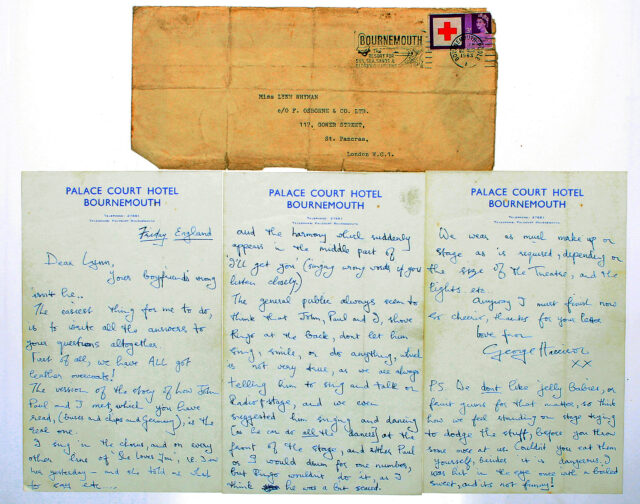 BOURNEMOUTH
The
RESORT FOR
BOURNEMOUTH-POOLE
1963
Miss LYNN WHYMAN
c/o F. OSBORNE & CO. LTD.
117, GOWER STREET,
St. Pancras,
London W.C.1.
PALACE COURT HOTEL
BOURNEMOUTH
TELEPHONE: 27681
Friday England
Dear Lynn,
Your boyfriend's wrong
isn't he..
The easiest thing for me to do,
is to write all the answers to
your questions altogether.
First of all, we have ALL got
leather overcoats!
The version of the story of how John
Paul and I met, which you have
read, (buses and chips and Germany), is the
real one.
I sing in the chorus, and on every
other line of 'She Loves You', i.e. I saw
her yesterday – and she told me what
to say etc...
PALACE COURT HOTEL
BOURNEMOUTH
TELEPHONE: 27681
and the harmony which suddenly
appears in the middle part of
'I'll get you' (singing wrong words if you
listen closely.)
The general public always seem to
think that John, Paul and I, shove
Ringo at the back, dont let him
sing, smile, or do anything, which
is not very true, as we are always
telling him to sing and talk on
Radio & stage, and we even
suggested him singing and dancing
(as he can do all the dances) at the
front of the stage, and either Paul
or I would drum for one number,
but Ringo wouldnt do it, as I
think he was a bit scared.
PALACE COURT HOTEL
BOURNEMOUTH
TELEPHONE: 27681
We wear as much make up on
stage as is required, depending on
the size of the Theatre, and the
lights etc.
Anyway I must finish now
so cheerio, thanks for your letter
love from
George Harrison
XX
PS. We dont like jelly Babies, or
fruit gums for that matter, so think
how we feel standing on stage trying
to dodge the stuff, before you throw
some more at us. Couldn't you eat them
yourself, besides it is dangerous. I
was hit in the eye once with a boiled
sweet, and its not funny!